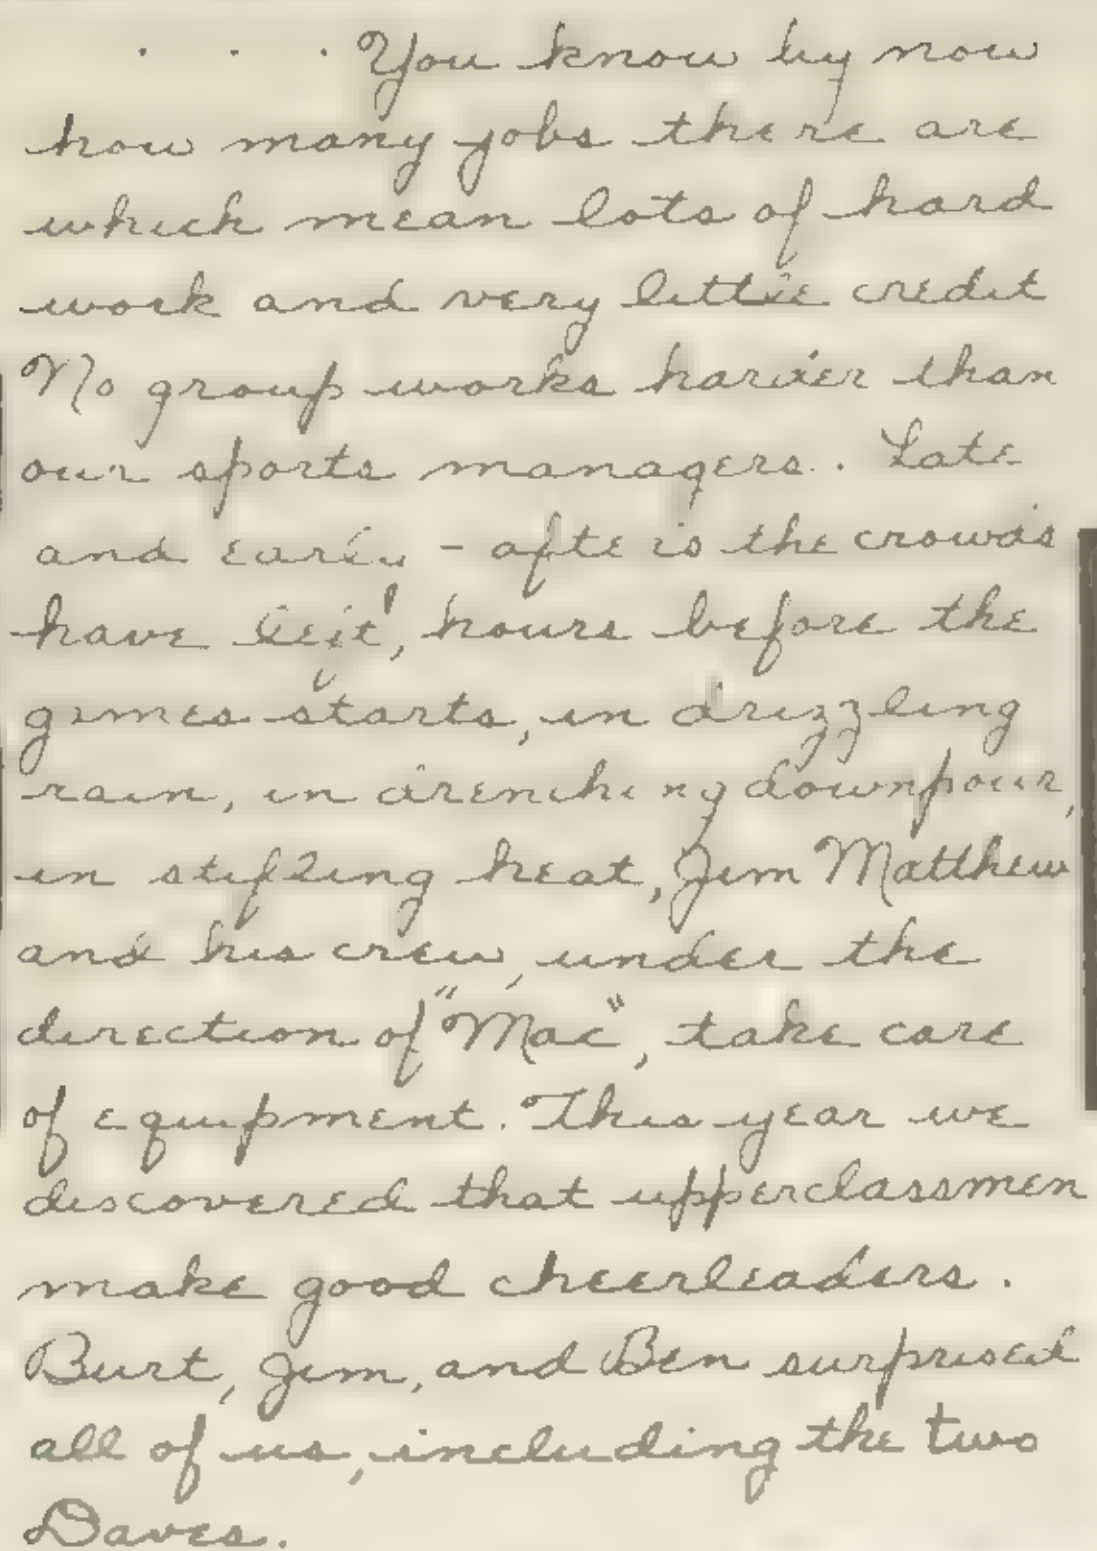 . . . You know by now
how many jobs there are
which mean lots of hard
work and very little credit
No group works harder than
our sports managers. Late
and early - after the crowds
have left, hours before the
games starts, in drizzling
rain, in drenching downpour,
in stifling heat, Jim Matthew
and his crew, under the
direction of "Mac", take care
of equipment. This year we
discovered that upperclassmen
make good cheerleaders.
Burt, Jim, and Ben surprised
all of us, including the two
Daves.